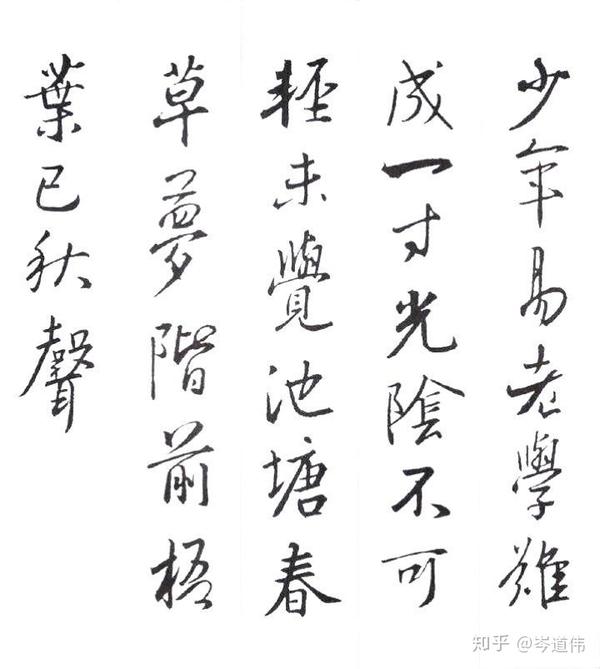 少年易老學難
成一寸光陰不可
輕未覺池塘春
草夢階前梧
葉已秋聲
知乎 @岑道伟